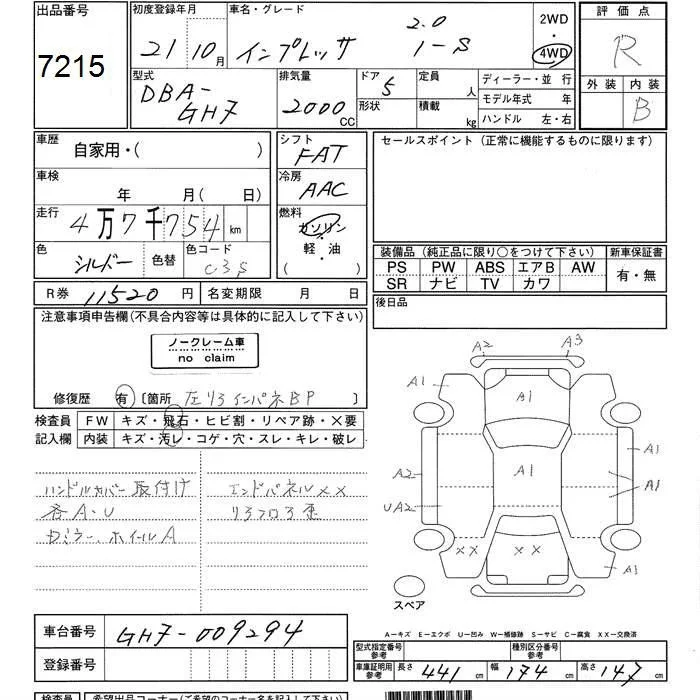 出品番号 初度登録年月日 車名・グレード 2WD 評価点
7215 21 10月 インプレッサ 2.0 I-S 4WD R
型式 排気量 ドア 定員 ディーラー・並行 外装 内装
DBA-GH7 2000cc 5 人 モデル年式 年 B
形状 積載 kg ハンドル 左・右
車歴 シフト セールスポイント(正常に機能するものに限ります)
自家用・( ) FAT
車検 冷房
年 月(日) AAC
走行 燃料
4万7千754km ガソリン・軽・油
( )
色 シルバー 色替 色コード C3S
装備品(純正品に限り○をつけて下さい) 新車保証書
PS PW ABS エアB AW 有・無
SR ナビ TV カワ
R券 11520円 名変期限 月 日 後日品
注意事項申告欄(不具合内容等は具体的に記入して下さい)
ノークレーム車
no claim
修復歴 有 〔箇所 左リヤインパネBP 〕
検査員 FW キズ・飛石・ヒビ割・リペア跡・X要
記入欄 内装 キズ・汚レ・コゲ・穴・スレ・キレ・破レ
ハンドルカバー取付け エンドパネルXX
各A・U リヤフロア歪
ホイールA
A2 A3
A1 A1 A1
A2 A1 A1 A1
UA2
XX XX A1
スペア
A-キズ E-エクボ U-凹み W-補修跡 S-サビ C-腐食 XX-交換済
車台番号 GH7-009294
型式指定番号 参考 種別区分番号 参考
登録番号
車庫証明用 参考 長さ 441cm 幅 174cm 高さ 147cm
検査員 希望出品コーナー(ご希望のコーナー名を記入下さい)